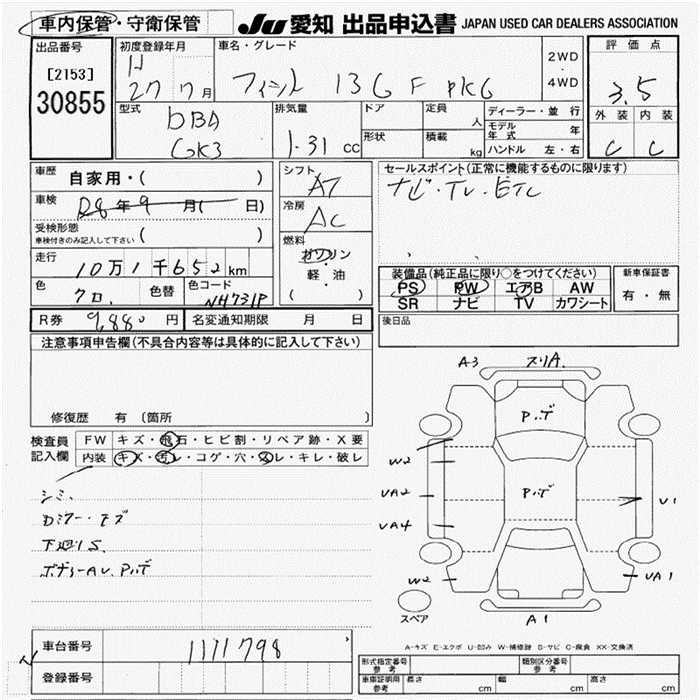 車内保管・守衛保管
JU 愛知 出品申込書 JAPAN USED CAR DEALERS ASSOCIATION
出品番号
[2153]
30855
初度登録年月
H
27 7月
車名・グレード
フィット 13G F PKG
2WD
・
4WD
評価点
3.5
外装 内装
C C
型式
DBA
GK3
排気量
1.31 CC
ドア
形状
定員
人
積載
kg
ディーラー・並行
モデル年式 年
ハンドル 左・右
車歴
自家用・( )
車検
R8年9月( 日)
受検形態
車検付きのみ記入して下さい ( )
走行
10万1千652km
色
クロ.
色替
色コード
NH731P
シフト
AT
冷房
AC
燃料
ガソリン
軽・油
( )
セールスポイント(正常に機能するものに限ります)
ナビ・TV・ETC
装備品(純正品に限り○をつけてください)
PS PW エアB AW
SR ナビ TV カワシート
新車保証書
有・無
R券 9,880 円
名変通知期限 月 日
後日品
注意事項申告欄(不具合内容等は具体的に記入して下さい)
修復歴 有 〔箇所
検査員
記入欄
FW キズ・飛石・ヒビ割・リペア跡・X要
内装 キズ・汚レ・コゲ・穴・スレ・キレ・破レ
シミ
Dミラー・キズ
下廻りS.
ボデーAU. P.ハゲ
A3 スリA.
P.ハゲ
P.ハゲ
W2
UA2
UA4
W2
U1
UA1
A1
スペア
A-キズ E-エクボ U-凹み W-補修跡 S-サビ C-腐食 XX-交換済
車台番号
1171798
登録番号
形式指定番号
参考
類別区分番号
参考
車庫証明用
参考
長さ cm
幅 cm
高さ cm